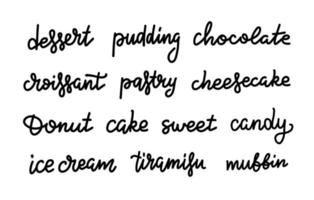 dessert pudding chocolate
croissant pastry cheesecake
Donut cake sweet candy
ice cream tiramisu muffin